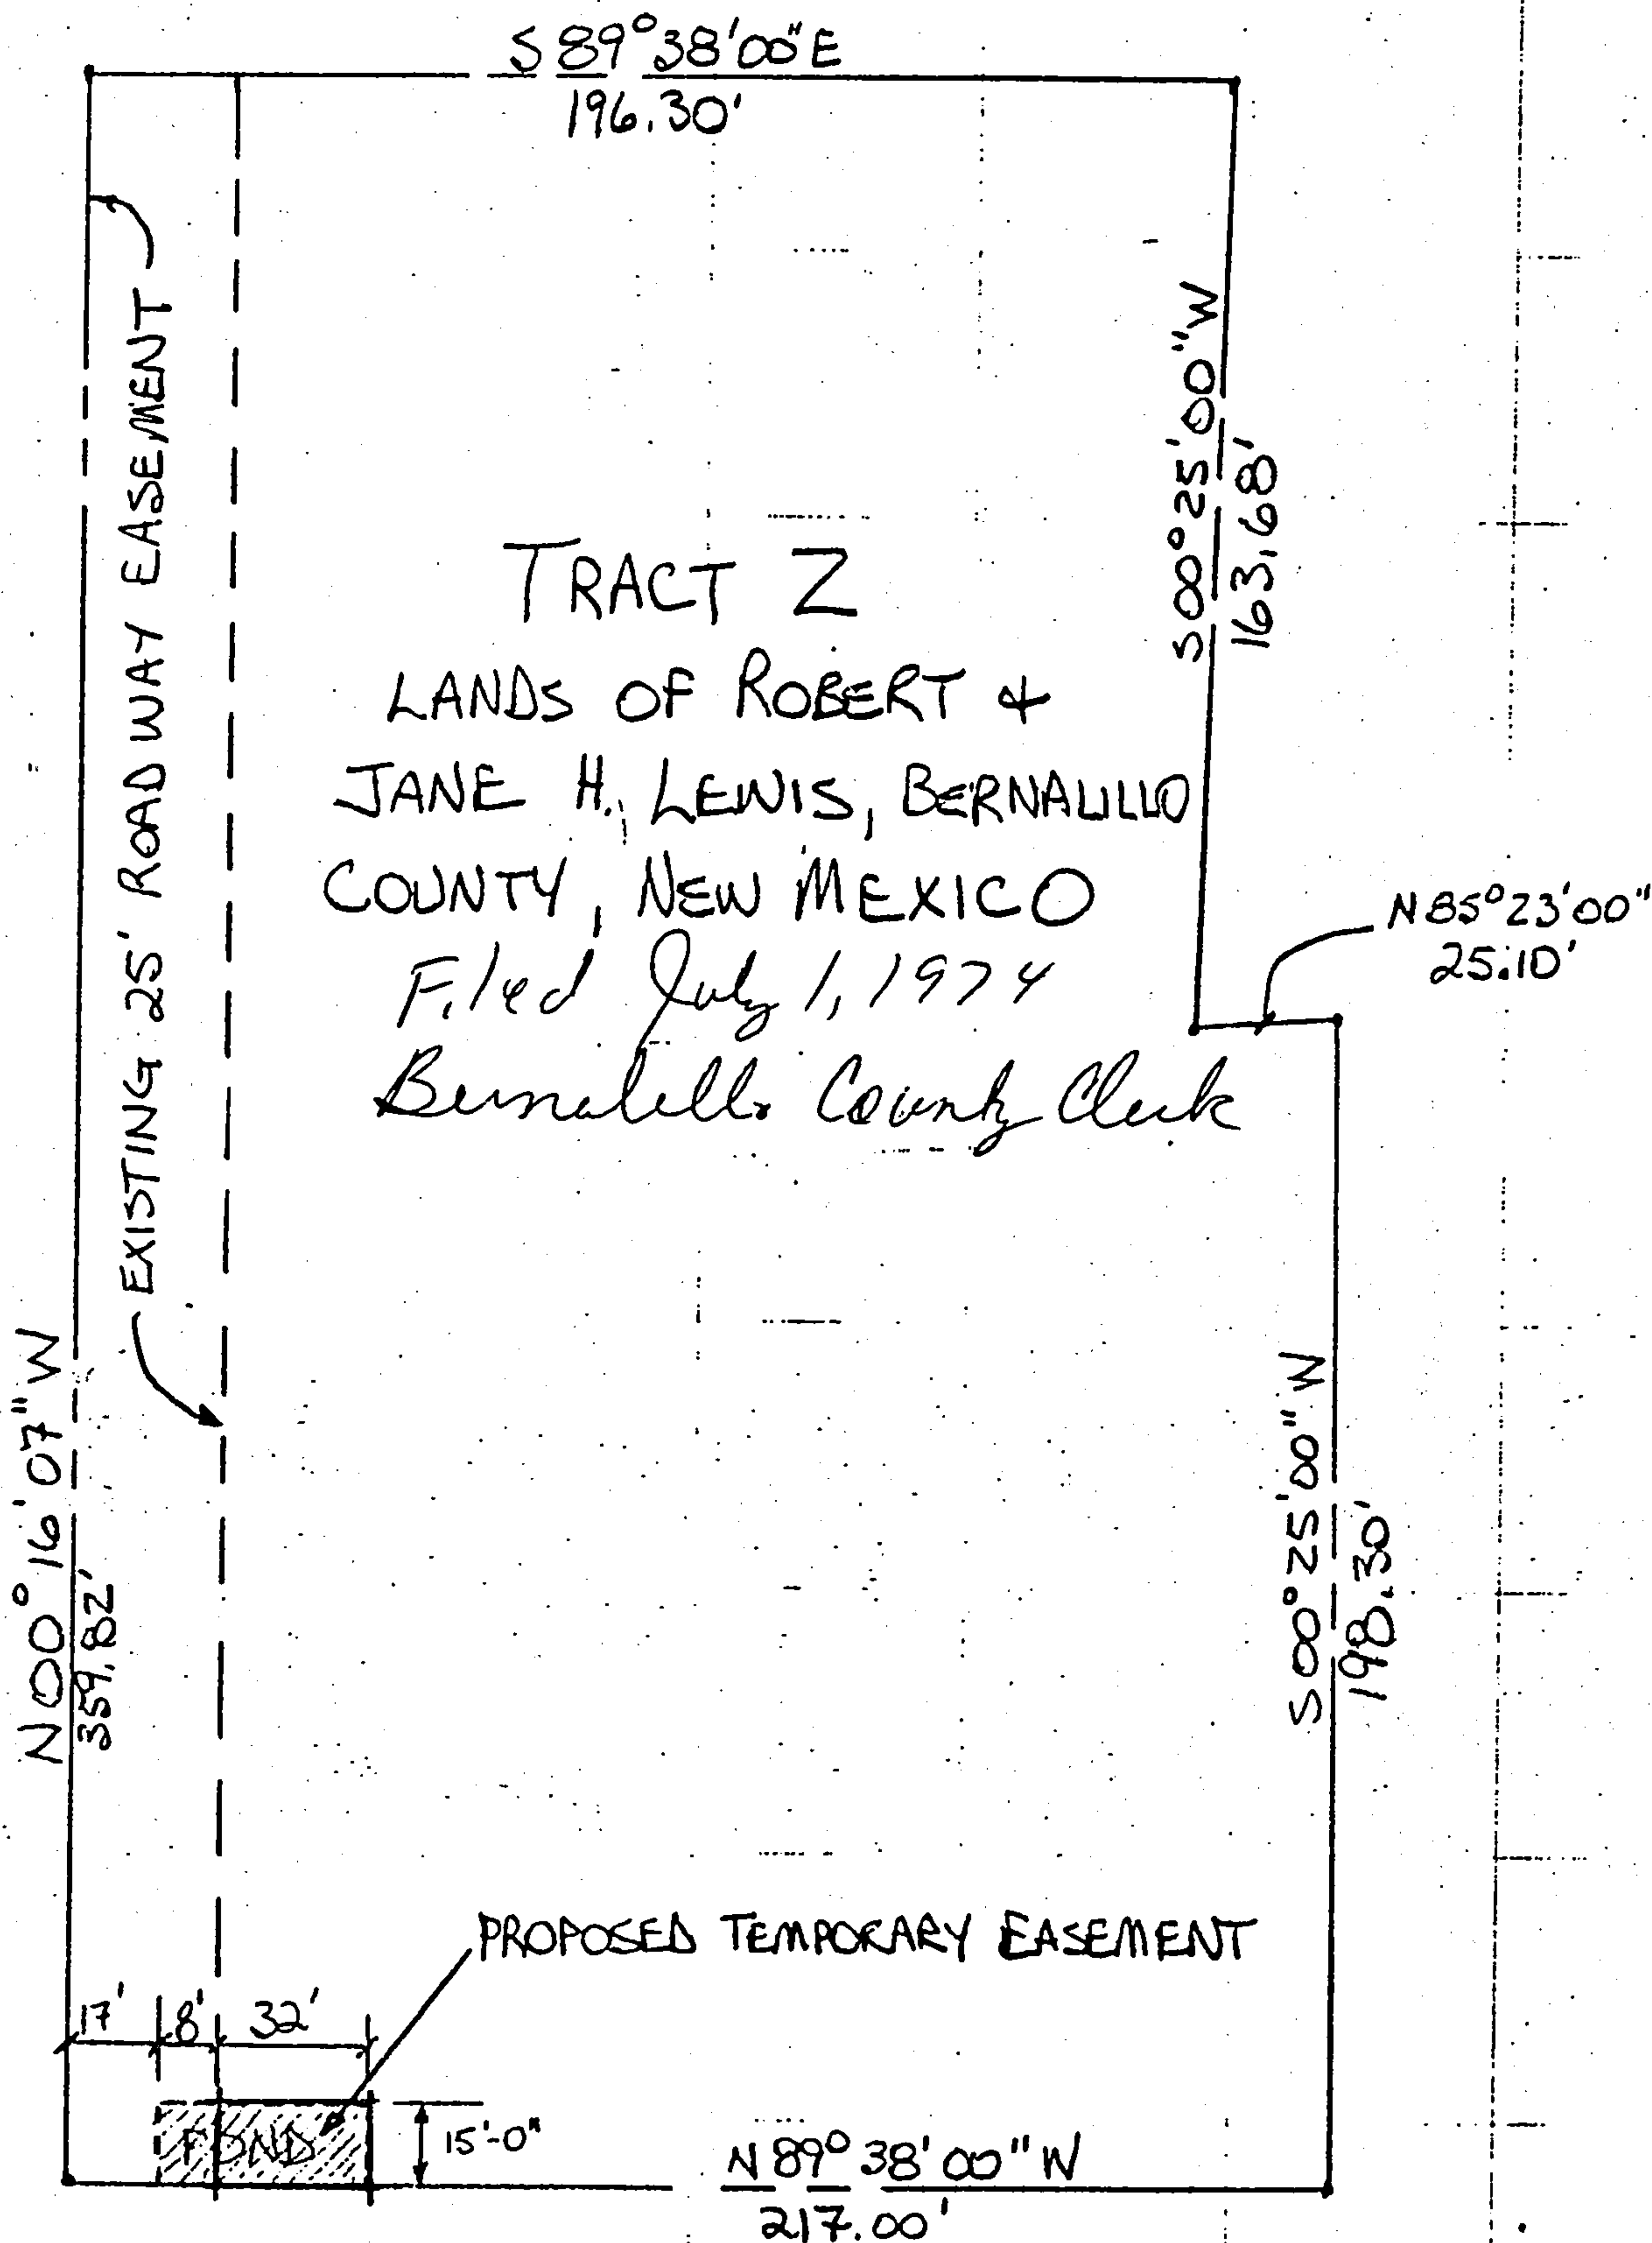 S 89°38'00" E
196.30'
EXISTING 25' ROADWAY EASEMENT
S 00°25'00" W
163.68'
TRACT Z
LANDS OF ROBERT &
JANE H. LEWIS, BERNALILLO
COUNTY, NEW MEXICO
Filed July 1, 1974
Bernalillo County Clerk
N 85°23'00"
25.10'
N 00°16'07" W
359.82'
S 00°25'00" W
198.30'
PROPOSED TEMPORARY EASEMENT
17' 8' 32'
POND
15'-0"
N 89° 38' 00" W
217.00'